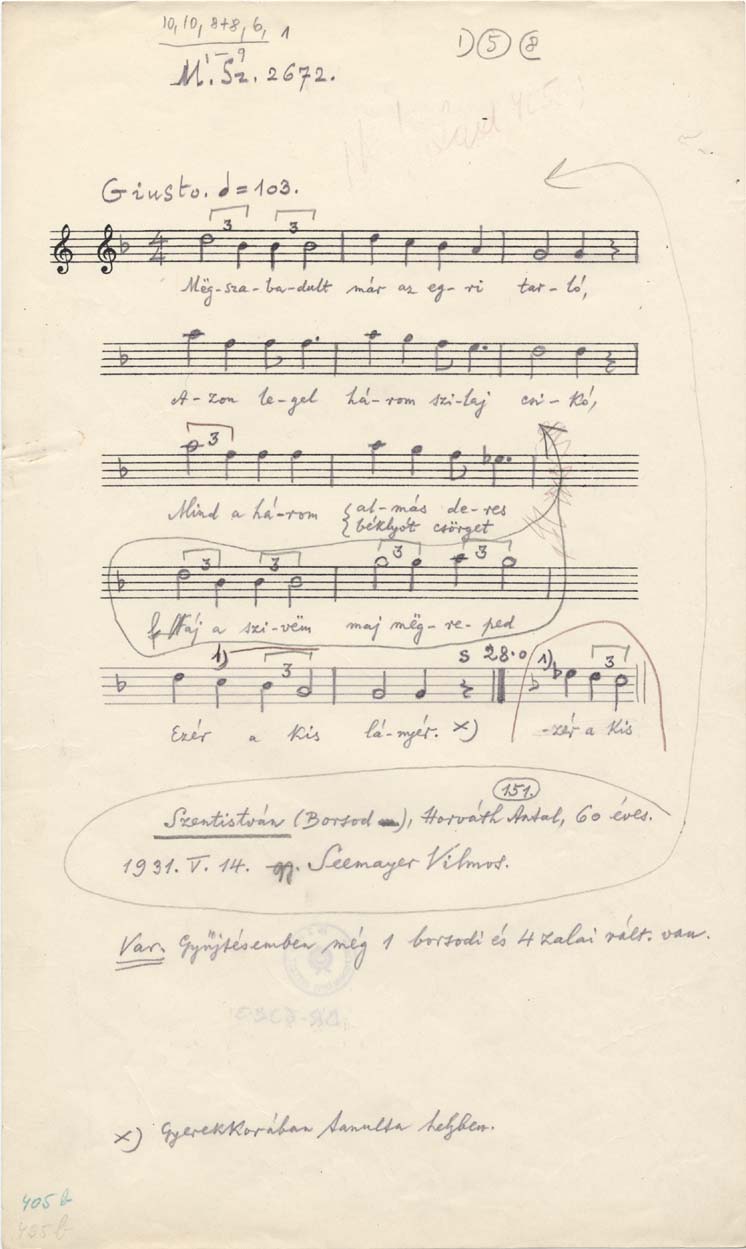 10, 10, 8+8, 6, 1
1–9
M. Sz. 2672.
1) 5 8
Giusto. = 103.
3 3
4 4
Mëg-sza-ba-dult már az eg-ri tar-ló,
A-zon le-gel há-rom szi-laj csi-kó,
3
Mind a há-rom al-más de-res
béklyót csörget
3 3 3 3
Háj a szi-vëm maj mëg-re-ped
1) 3 S 28.0 1) 3
Ezér a kis lá-nyér. x) -zér a kis
151.
Szentistván (Borsod), Horváth Antal, 60 éves.
1931. V. 14. gy. Seemayer Vilmos.
Var. Gyűjtésemben még 1 borsodi és 4 zalai vált. van.
x) Gyerekkorában tanulta helyben.
405 b
405 b